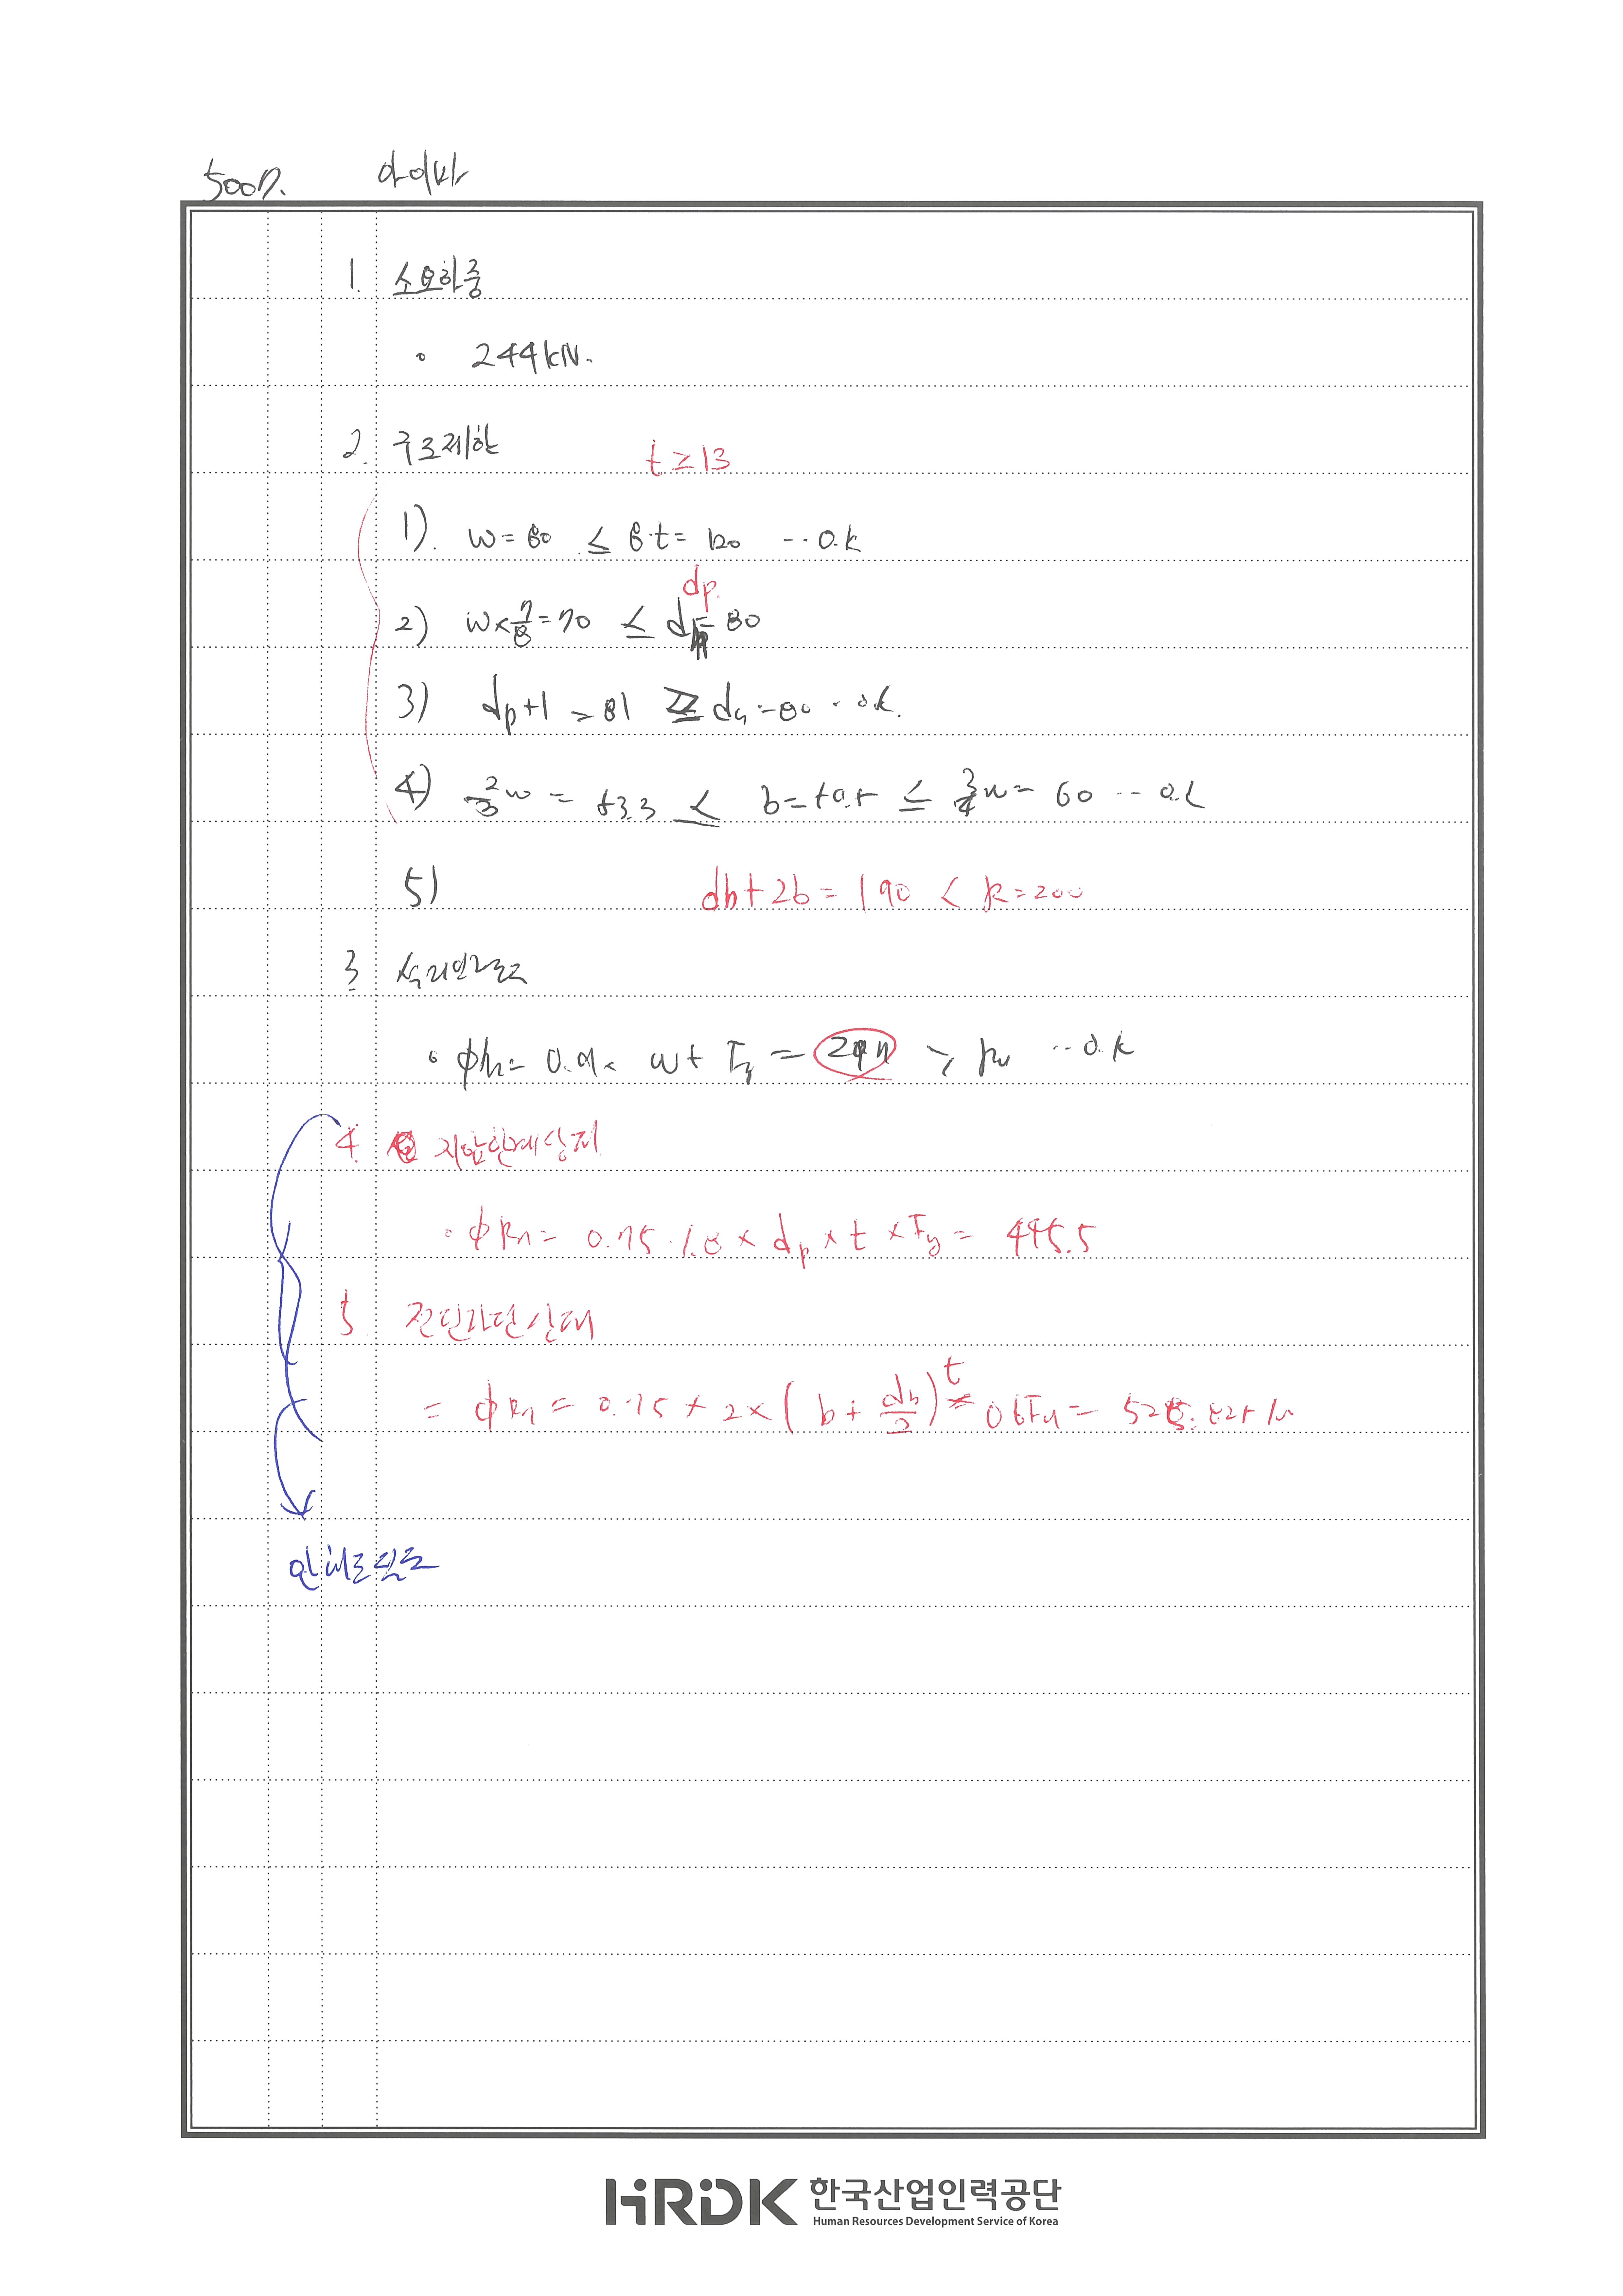 5007. 아이바
1. 소요하중
• 244kN.
2. 구조제한 t ≥ 13
1). w = 80 ≤ 8t = 120 -- o.k
2) w × 7/8 = 70 ≤ dp = 80
3) dp+1 = 81 ≥ dh = 80 -- o.k.
4) 2/3 w = 53.3 ≤ b = ≤ 3/4 w = 60 -- o.k
5) dh + 2b = 190 < R = 200
3
• φPn = 0.9 × wt Fy = > Pu -- o.k
4 지압한계상태
• φRn = 0.75 · 1.8 × dp × t × Fy = 445.5
5 전단파단상태
= φRn = 0.75 × 2 × (b + dh/2) t × 0.6Fu =
HRDK 한국산업인력공단
Human Resources Development Service of Korea